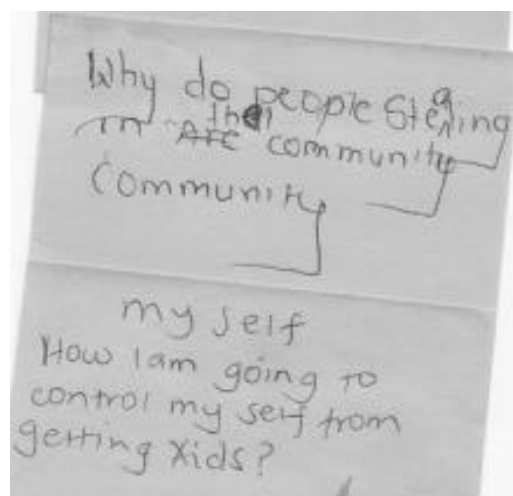 Why do people Steaing
in the community
Community
my self
How I am going to
control my self from
getting Kids?